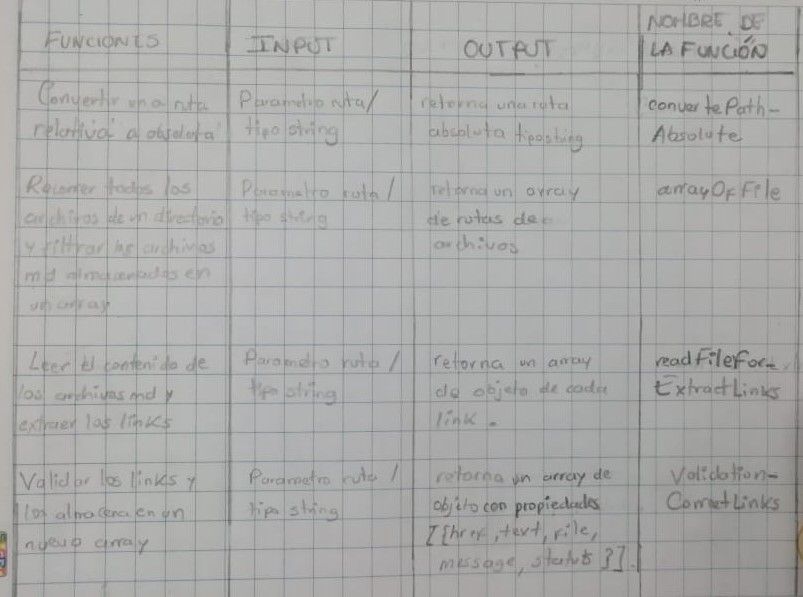 FUNCIONES
INPUT
OUTPUT
NOMBRE DE
LA FUNCIÓN
Convertir una ruta
relativa a absoluta
Parametro ruta/
tipo string
retorna una ruta
absoluta tipo string
convertePath-
Absolute
Recorrer todos los
archivos de un directorio
y filtrar los archivos
md almacenados en
un array
Parametro ruta/
tipo string
retorna un array
de rutas de
archivos
arrayOfFile
Leer el contenido de
los archivos md y
extraer los links
Parametro ruta/
tipo string
retorna un array
de objeto de cada
link.
readFileFor-
ExtractLinks
Validar los links y
los almacena en un
nuevo array
Parametro ruta/
tipo string
retorna un array de
objeto con propiedades
[{href, text, file,
message, status}].
Validation-
CorrectLinks